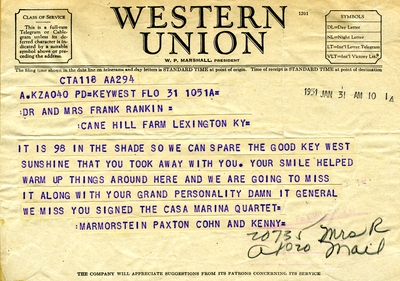 CLASS OF SERVICE
This is a full-rate
Telegram or Cable-
gram unless its de-
ferred character is in-
dicated by a suitable
symbol above or pre-
ceding the address.
WESTERN
UNION
W. P. MARSHALL, PRESIDENT
1201
SYMBOLS
DL=Day Letter
NL=Night Letter
LT=Int'l Letter Telegram
VLT=Int'l Victory Ltr.
The filing time shown in the date line on telegrams and day letters is STANDARD TIME at point of origin. Time of receipt is STANDARD TIME at point of destination
CTA118 AA294
A.KZA040 PD=KEYWEST FLO 31 1051A=
1951 JAN 31 AM 10 14
:DR AND MRS FRANK RANKIN=
:CANE HILL FARM LEXINGTON KY=
IT IS 98 IN THE SHADE SO WE CAN SPARE THE GOOD KEY WEST
SUNSHINE THAT YOU TOOK AWAY WITH YOU. YOUR SMILE HELPED
WARM UP THINGS AROUND HERE AND WE ARE GOING TO MISS
IT ALONG WITH YOUR GRAND PERSONALITY DAMN IT GENERAL
WE MISS YOU SIGNED THE CASA MARINA QUARTET=
:MARMORSTEIN PAXTON COHN AND KENNY=
20735 Mrs R
Mail
THE COMPANY WILL APPRECIATE SUGGESTIONS FROM ITS PATRONS CONCERNING ITS SERVICE